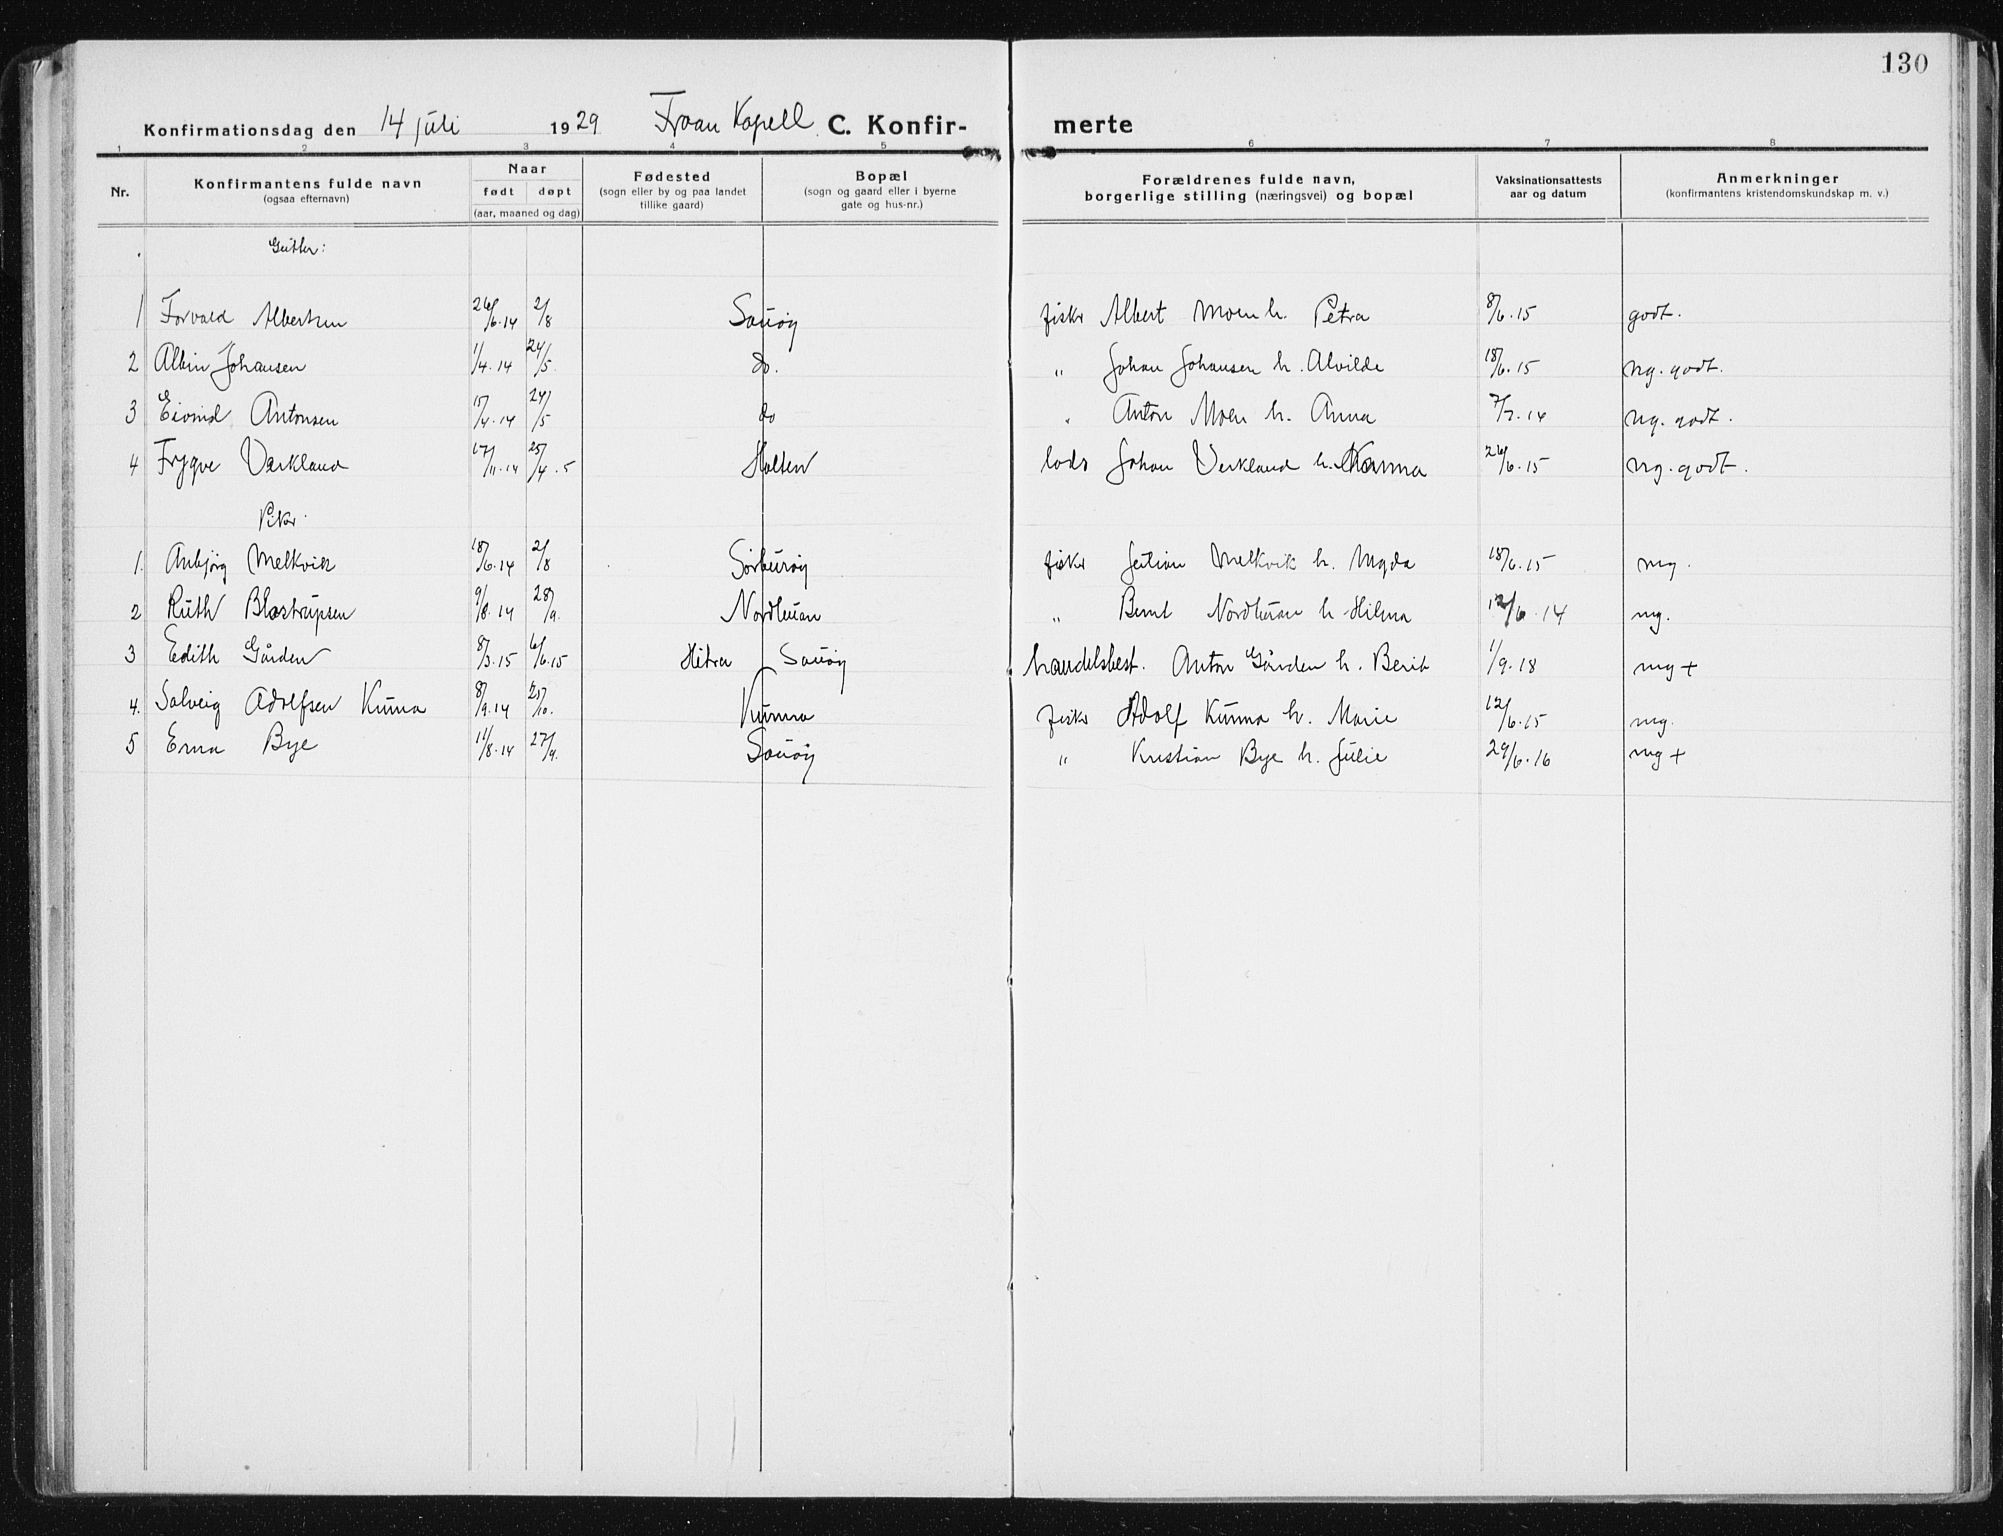 130
Konfirmationsdag den 14 juli 1929 Froan Kapell C. Konfir- merte
1 2 3 4 5 6 7 8
Nr. Konfirmantens fulde navn (ogsaa efternavn) Naar født døpt (aar, maaned og dag) Fødested (sogn eller by og paa landet tillike gaard) Bopæl (sogn og gaard eller i byerne gate og hus-nr.) Forældrenes fulde navn, borgerlige stilling (næringsvei) og bopæl Vaksinationsattests aar og datum Anmerkninger (konfirmantens kristendomskundskap m. v.)
Gutter:
1 Torvald Albertsen 26/6.14 2/8 Sauøy fisker Albert Moen h. Petra 8/6.15 godt.
2 Albin Johansen 1/4.14 24/5. do. " Johan Johansen h. Alvilde 18/6.15 mg. godt.
3 Eivind Antonsen 15/4.14 24/5 do " Anton Moen h. Anna 7/7.14 mg. godt.
4 Trygve Værkland 17/11.14 25/4.5 Halten lods Johan Verkland h. 26/6.15 mg. godt.
Piker.
1. Anbjørg Melkvik 18/6.14 2/8 Sørburøy fisker Melkvik h. Magda 18/6.15 mg.
2 Ruth 9/8.14 28/9. Nordbuan " Bernt Nordbuan h. Hilma 12/6.14 mg.
3 Edith Gården 8/3.15 6/6.15 Hitra Sauøy handelsbest. Anton Gården h. Berit 1/9.18 mg +
4. Solveig Adolfsen Kunna 8/9.14 25/10. Kunna fisker Adolf Kunna h. Marie 12/6.15 mg.
5 Erna Bye 11/8.14 27/9. Sauøy " Kristian Bye h. Julie 29/6.16 mg +